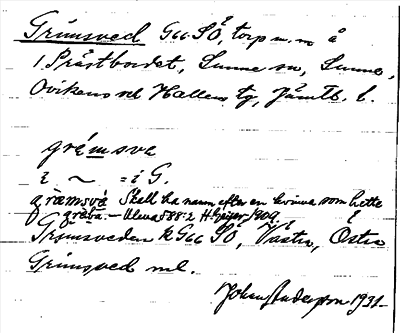 Grimsved G66 SÖ, torp m. m å
1 Prästbordet, Sunne sn, Sunne,
Ovikens o Hallens tg, Jämtl. l.
grémsve
i ~ = i G.
græmsvé Skall ha namn efter en kvinna som hette
græba. – Ulma 588:2 H. Geijer 1909.
Grimsveden k G66 SÖ, Västra, Östra
Grimsved ml.
Johan Anderson 1931